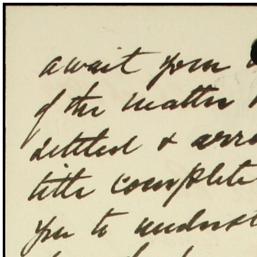 await your
of the matter
settled & arra
title complete
you to underst